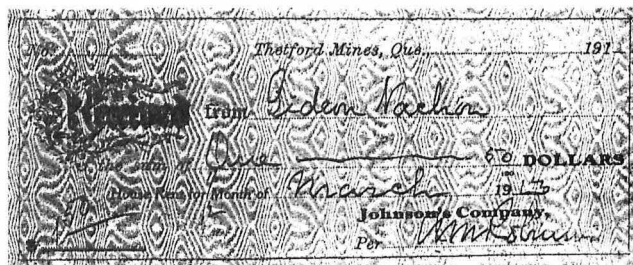 No. Thetford Mines, Que., 191
Received from Gideon Vachon
the sum of One 50 DOLLARS
House Rent for Month of March 1913
Johnson's Company,
$ 1.50 Per